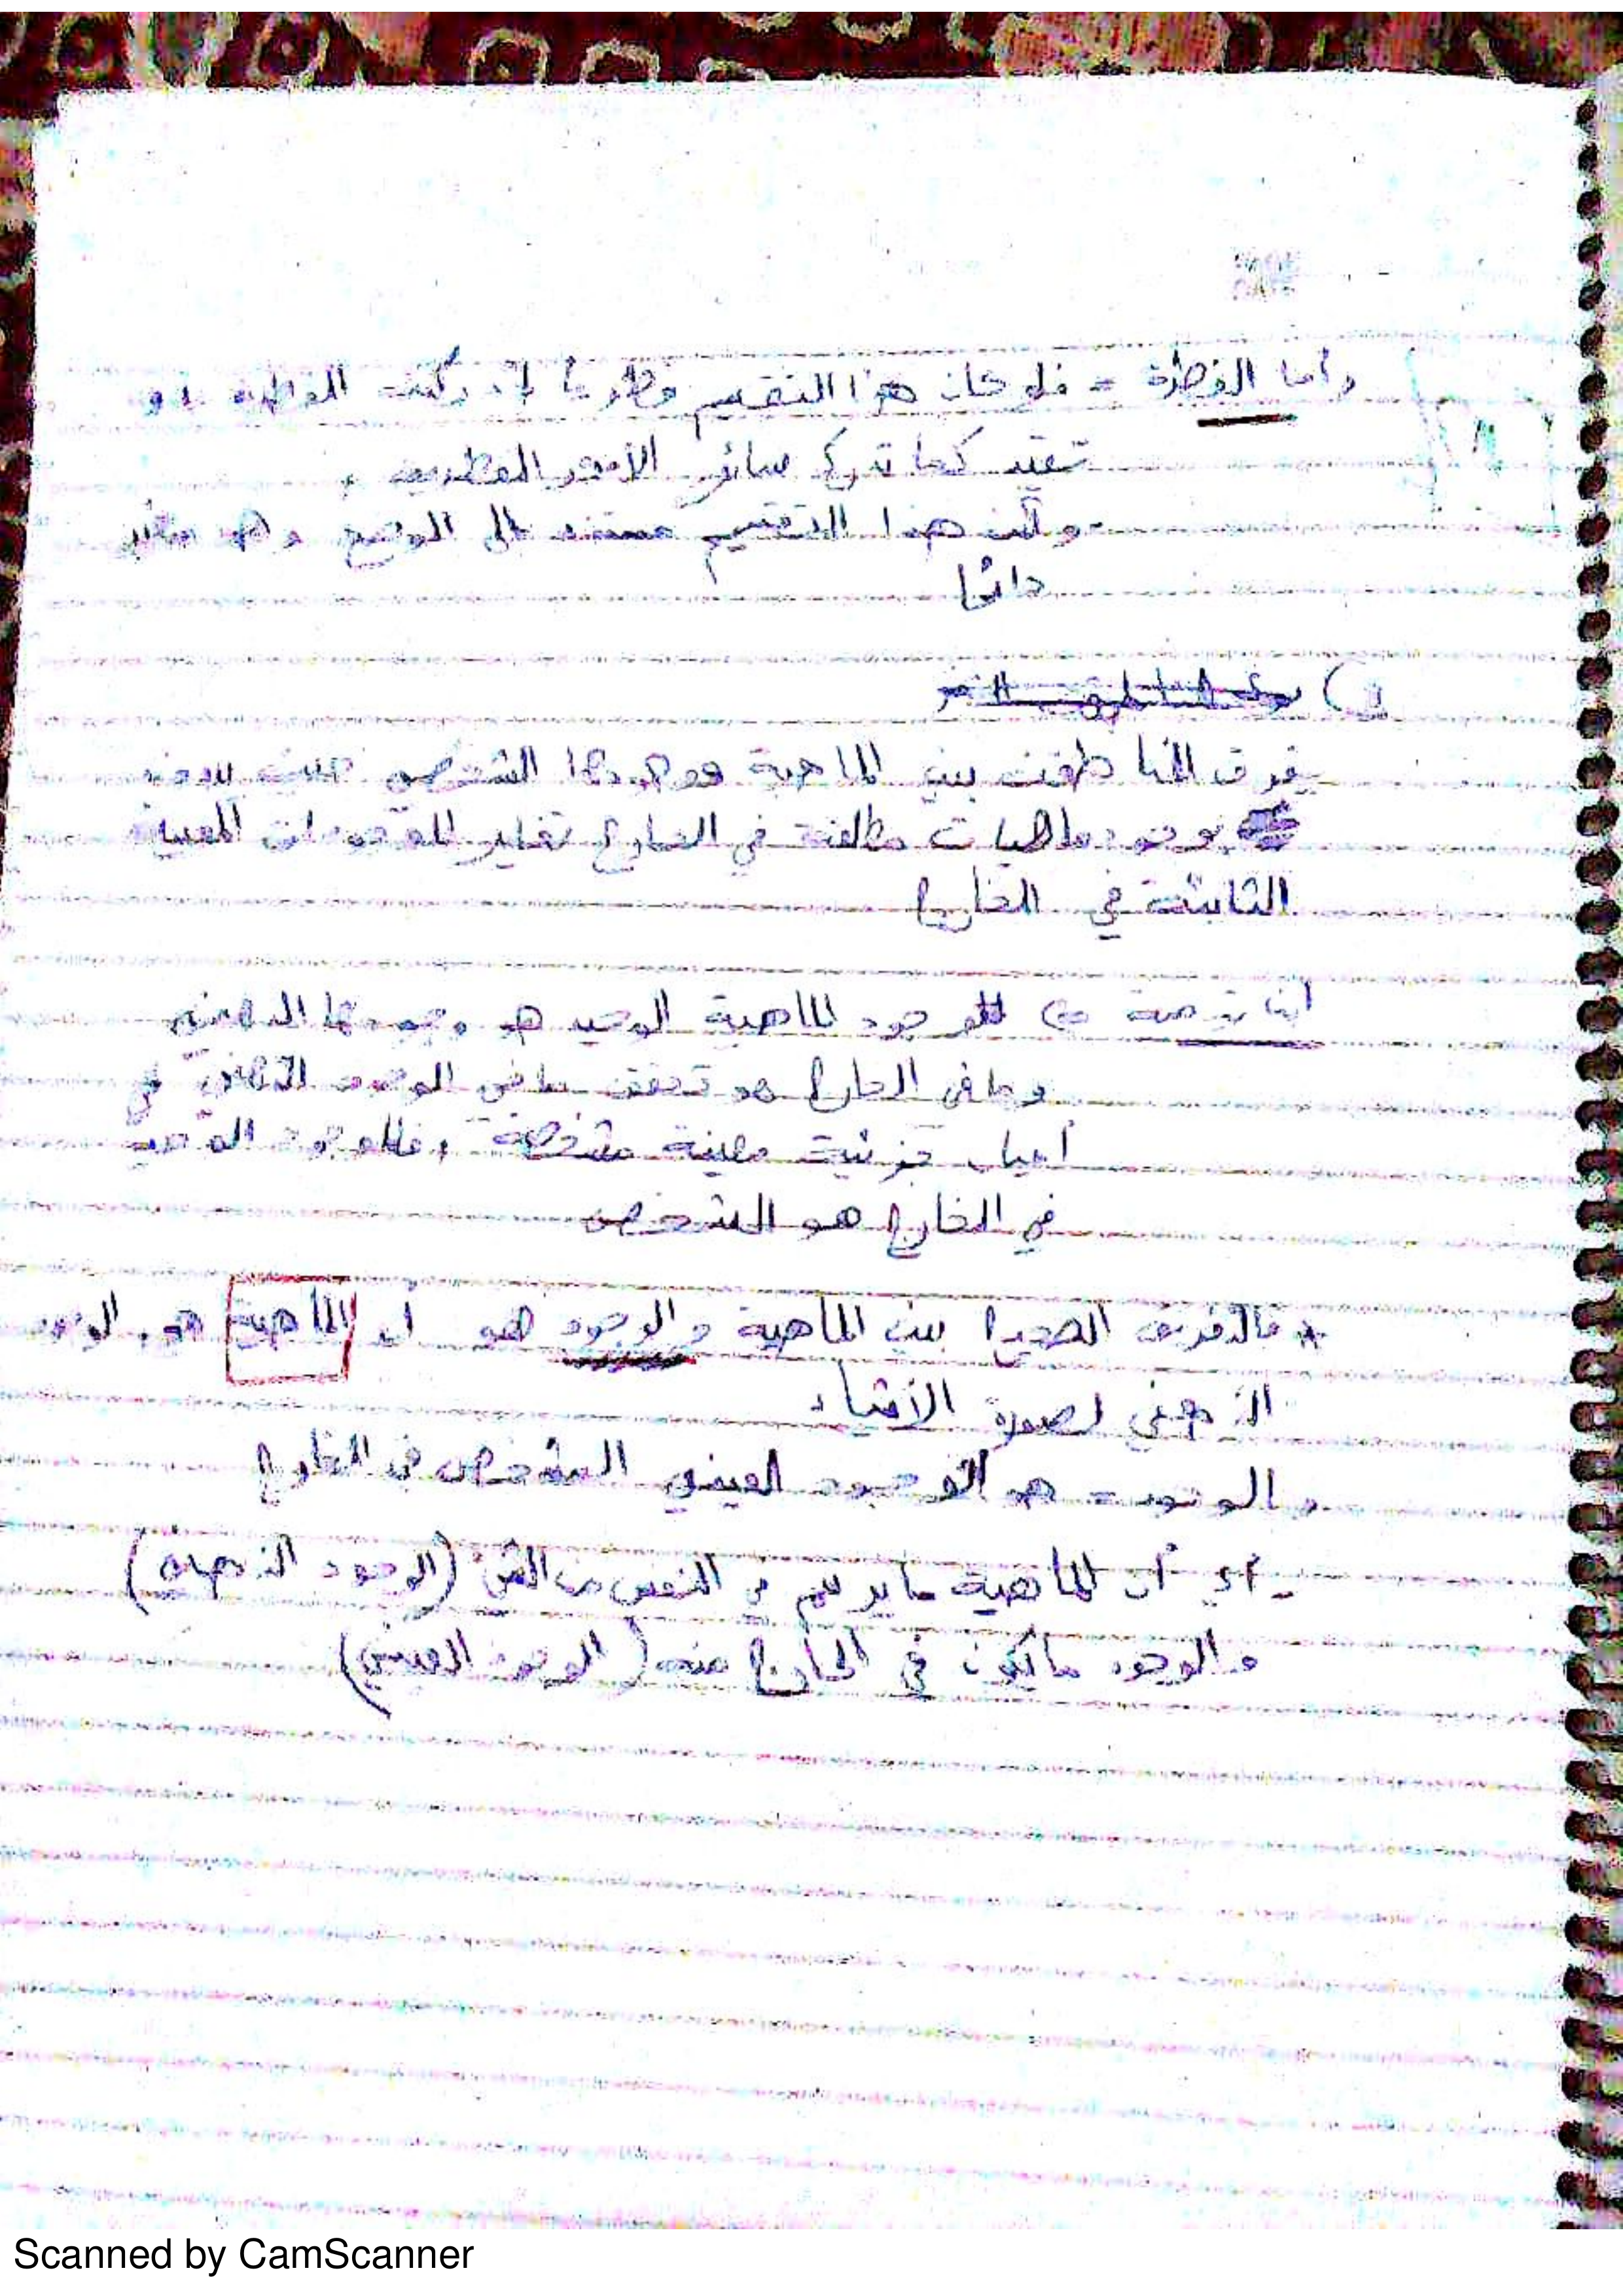 وأما الفطرة = فلو كان هذا التقسيم فطريا لأدركت الفطرة بدون
تقيد كما تدرك سائر الأمور الفطرية ,
ولكن هذا التقسيم مستند الى الوضع وهو متغير
دائما
يفرق المناطقة بين الماهية ووجودها الشخصي حيث
بوجود ماهيات مطلقة في الخارج تغاير للموجودات المعينة
الثابتة في الخارج
ابن تيمية => الوجود للماهية الوحيد هو وجودها الذهني
وما في الخارج هو تحقق ما في الوجود الذهني في
أعيان جزئية معينة مشخصة , فالوجود الوحيد
في الخارج هو الشخصي
* فالتفريق الصحيح بين الماهية والوجود هو ان الماهية هي الوجود
الذهني لصورة الأشياء
والوجود = هو الوجود العيني المشخص في الخارج
- أي أن الماهية ما يرتسم في النفس من الشئ (الوجود الذهني)
والوجود ما يكون في الخارج منه (الوجود العيني)
Scanned by CamScanner